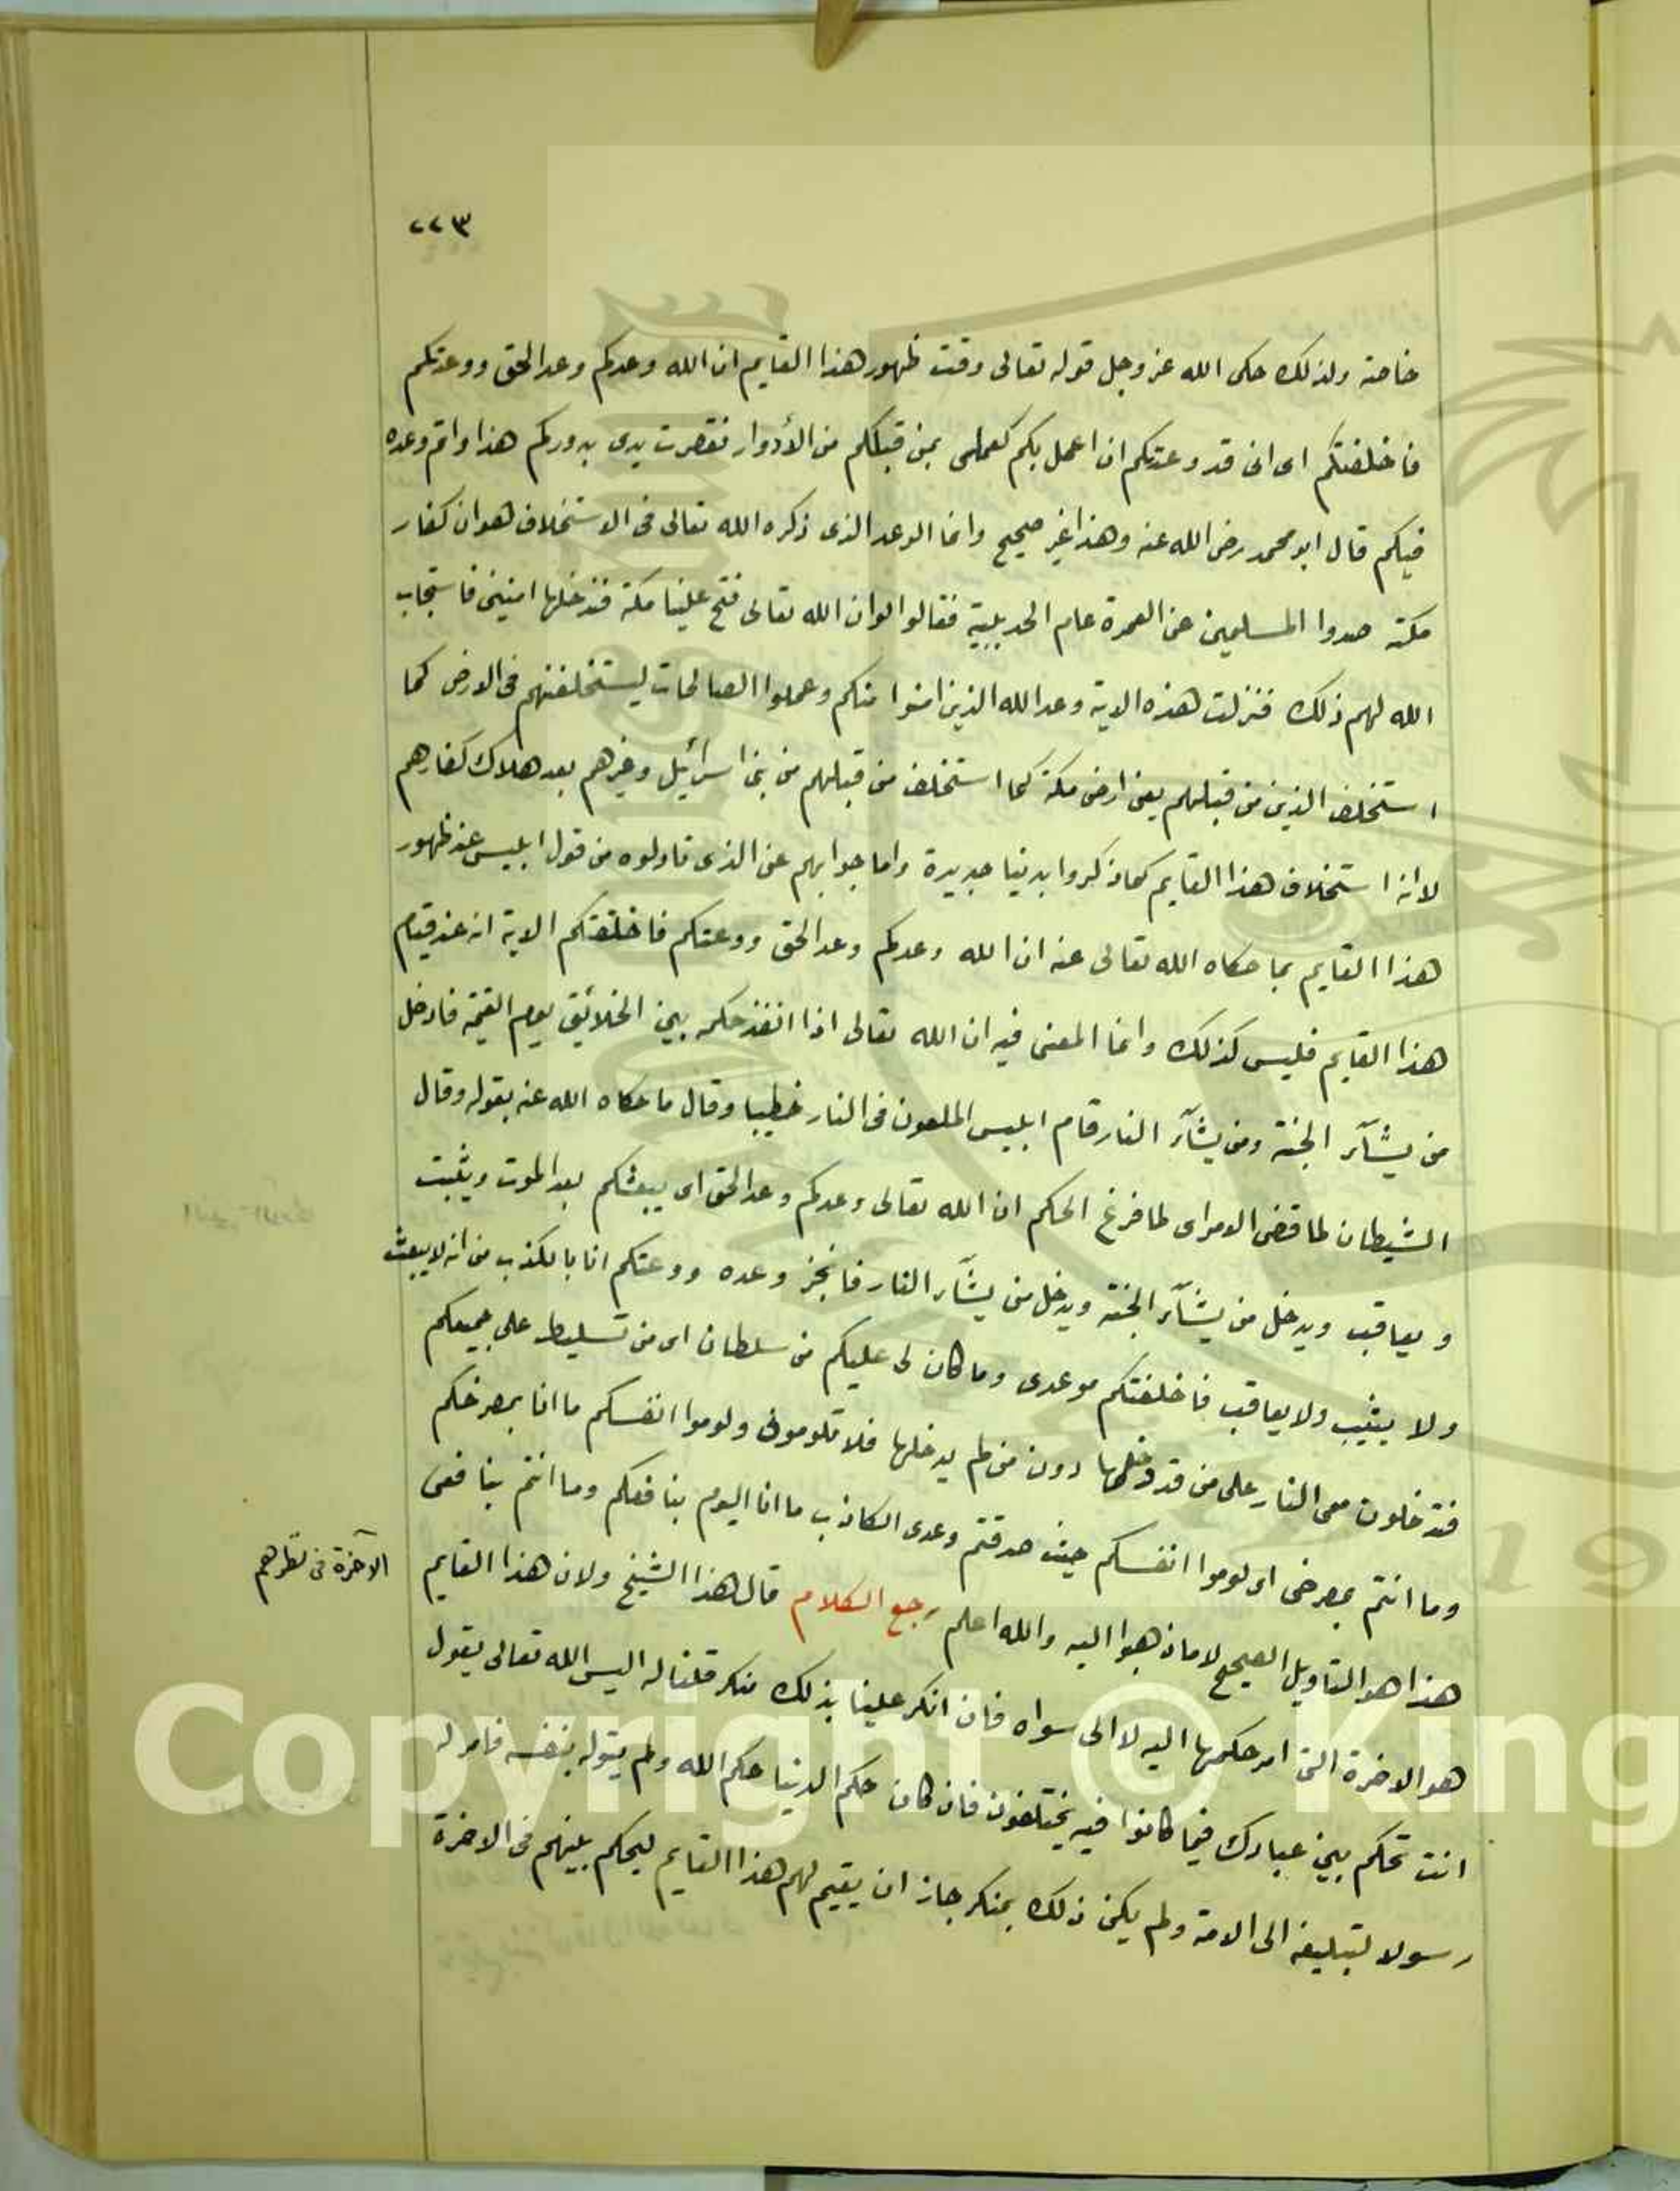 ٢٢٣
خاصة ولذلك حكى الله عز وجل قوله تعالى وقت ظهور هذا القايم ان الله وعدكم وعد الحق ووعدتكم
فاخلفتكم اى انى قد وعدتكم ان اعمل بكم كعملى بمن قبلكم من الأدوار فقصرت يدى بدوركم هذا واتم وعده
فيكم قال ابو محمد رضى الله عنه وهذا غير صحيح وانما الوعد الذى ذكره الله تعالى فى الاستخلاف هو ان كفار
مكة صدوا المسلمين عن العمرة عام الحديبية فقالوا لو ان الله تعالى فتح علينا مكة فندخلها امنين فاستجاب
الله لهم ذلك فنزلت هذه الاية وعد الله الذين امنوا منكم وعملوا الصالحات ليستخلفنهم فى الارض كما
استخلف الذين من قبلهم يعنى ارض مكة كما استخلف من قبلهم من بنى اسرائيل وغيرهم بعد هلاك كفارهم
لا انه استخلاف هذا القايم كما ذكروا بدنيا جديدة واما جوابهم عن الذى تاولوه من قول ابليس عند ظهور
هذا القايم بما حكاه الله تعالى عنه ان الله وعدكم وعد الحق ووعدتكم فاخلفتكم الاية انه عند قيام
هذا القايم فليس كذلك وانما المعنى فيه ان الله تعالى اذا انفذ حكمه بين الخلائق يوم القيمة فادخل
من يشآء الجنة ومن يشآء النار قام ابليس الملعون فى النار خطيبا وقال ما حكاه الله عنه بقوله وقال
الشيطان لما قضى الامر اى لما فرغ الحكم ان الله تعالى وعدكم وعد الحق اى يبعثكم بعد الموت ويثبت
ويعاقب ويدخل من يشآء الجنة ويدخل من يشآء النار فانجز وعده ووعدتكم انا بالكذب من انه لا يبعث
ولا يثيب ولا يعاقب فاخلفتكم موعدى وما كان لى عليكم من سلطان اى من تسليط على جميعكم
فتدخلون معى النار على من قد دخلها دون من لم يدخلها فلا تلومونى ولوموا انفسكم ما انا بمصرخكم
وما انتم بمصرخى اى لوموا انفسكم حيث صدقتم وعدى الكاذب ما انا اليوم بنافعكم وما انتم بنافعى
هذا هو التاويل الصحيح لا ما ذهبوا اليه والله اعلم رجع الكلام قال هذا الشيخ ولان هذا القايم
الآخرة فى نظرهم
هو الاخرة التى امر حكمها اليه لا الى سواه فان انكر علينا بذلك منكر قلنا له اليس الله تعالى يقول
انت تحكم بين عبادك فيما كانوا فيه يختلفون فان كان حكم الدنيا حكم الله ولم يتوله بنفسه فامر له
رسولا لتبليغه الى الامة ولم يكن ذلك بمنكر جاز ان يقيم لهم هذا القايم ليحكم بينهم فى الاخرة
Copyright © King
19